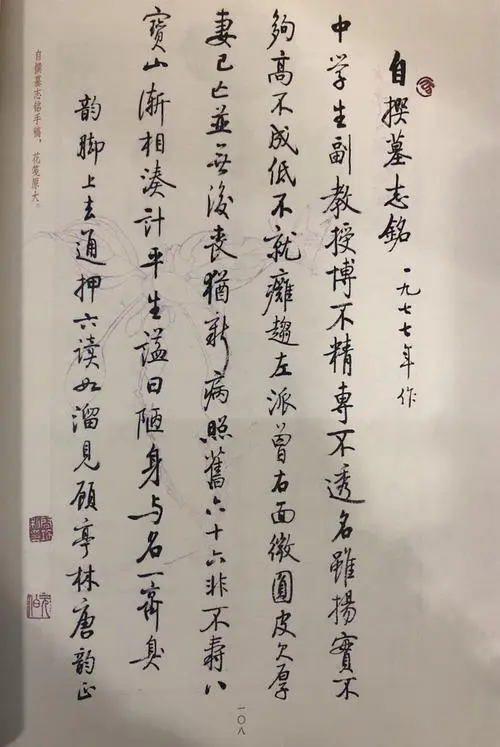 自撰墓志銘 一九七七年作
中学生副教授博不精專不透名雖揚實不
夠高不成低不就癱趨左派曾右面微圓皮欠厚
妻已亡並無後喪猶新病照舊六十六非不壽八
寶山漸相湊計平生謚曰陋身与名一齊臭
韵脚上去通押六读如溜見顾亭林唐韵正
自撰墓志銘手稿，花箋原大。
一〇八